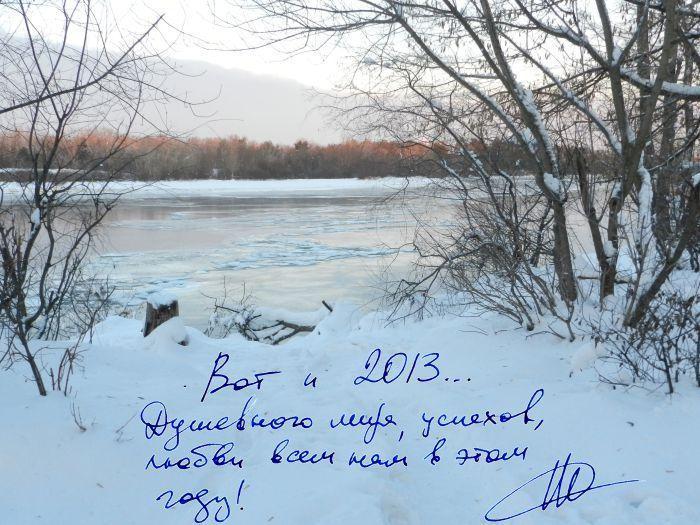 Вот и 2013...
Душевного мира, успехов,
любви всем нам в этом
году!